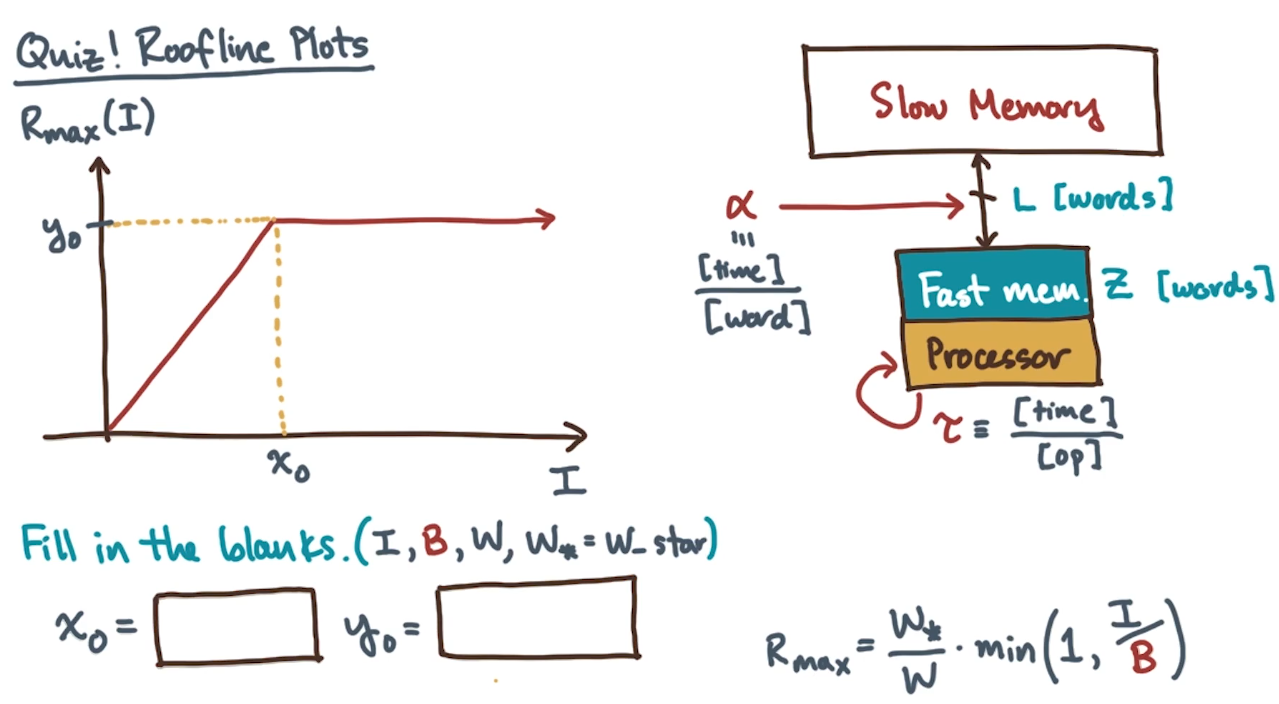 Quiz! Roofline Plots
R_max(I)
y_0
x_0
I
Slow Memory
α
≡
[time]
[word]
L [words]
Fast mem.
Z [words]
Processor
τ ≡ [time]
[op]
Fill in the blanks. (I, B, W, W_* = W_star)
x_0 =
y_0 =
R_max = W_*/W · min(1, I/B)